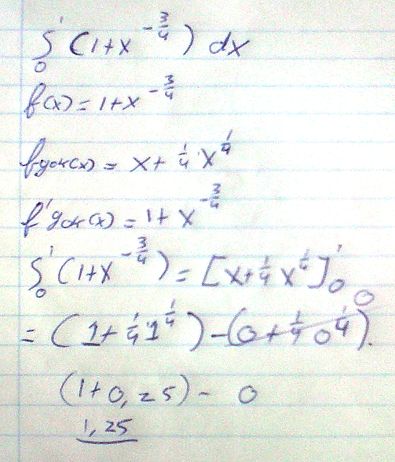 ∫₀¹ (1+x^(-3/4)) dx
f(x) = 1+x^(-3/4)
fgok(x) = x + 1/4 x^(1/4)
f'gok(x) = 1 + x^(-3/4)
∫₀¹ (1+x^(-3/4)) = [x+1/4 x^(1/4)]₀¹
= (1+1/4 1^(1/4)) - (0+1/4 0^(1/4)) 0
(1+0,25) - 0
1,25